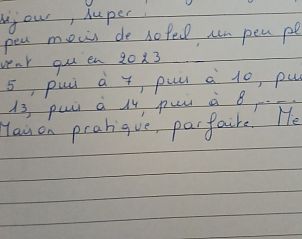 séjour, super.
peu moins de soleil, un peu pl
vent qu'en 2023
5, puis à 7, puis à 10, pui
13, puis à 14, puis à 8, .....
Maison pratique, parfaite. Me